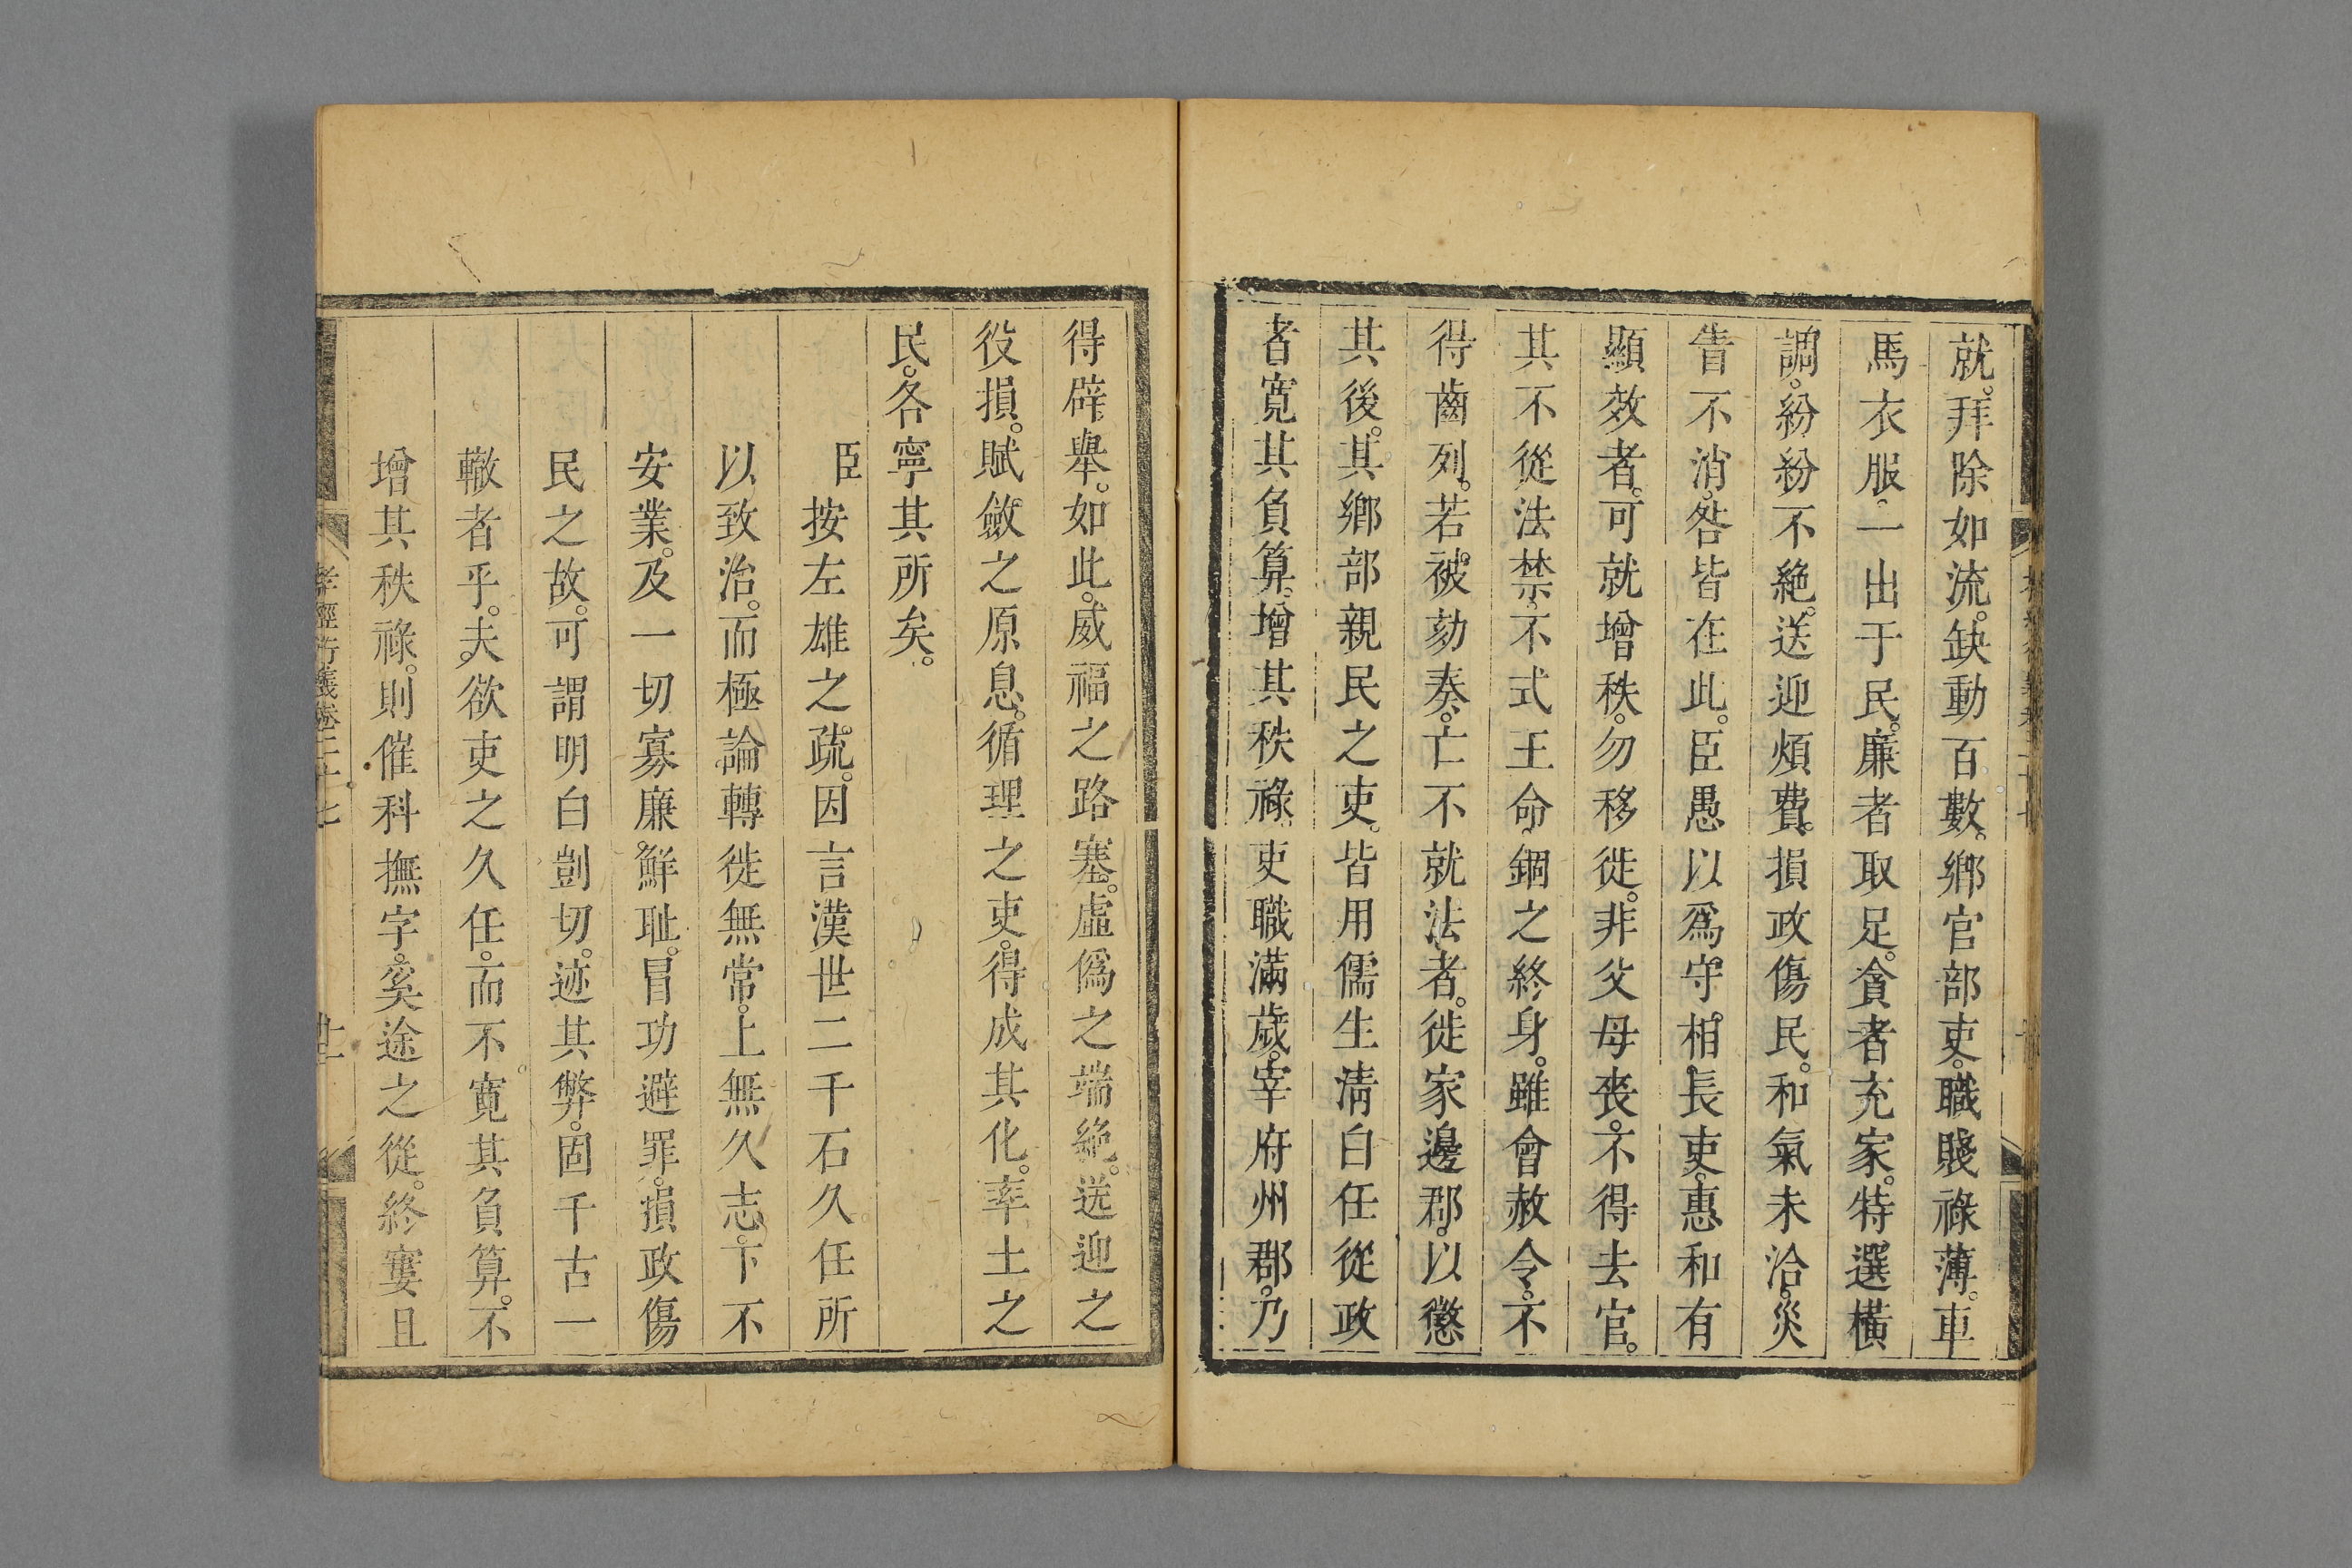 就。拜除如流。缺動百數。鄉官部吏。職賤祿薄。車
馬衣服。一出于民。廉者取足。貪者充家。特選橫
調。紛紛不絶。送迎煩費。損政傷民。和氣未洽。災
眚不消。咎皆在此。臣愚以爲守。相長吏。惠和有
顯效者。可就增秩。勿移徙。非父母喪。不得去官。
其不從法禁。不式王命。錮之終身。雖會赦令。不
得齒列。若被劾奏。亡不就法者。徙家邊郡。以懲
其後。其鄉部親民之吏。皆用儒生淸白任從政
者寬其負算。增其秩祿。吏職滿歲。宰府州郡。乃
得辟舉。如此。威福之路塞。虛僞之端絶。送迎之
役損。賦斂之原息。循理之吏。得成其化。率土之
民。各寧其所矣。
臣按左雄之疏。因言漢世二千石久任所
以致治。而極論轉徙無常。上無久志。下不
安業。及一切寡廉鮮耻。冒功避罪。損政傷
民之故。可謂明白剴切。迹其弊。固千古一
轍者乎。夫欲吏之久任。而不寬其負算。不
增其秩祿。則催科撫字。奚途之從。終寠且
孝經衍義卷二十七